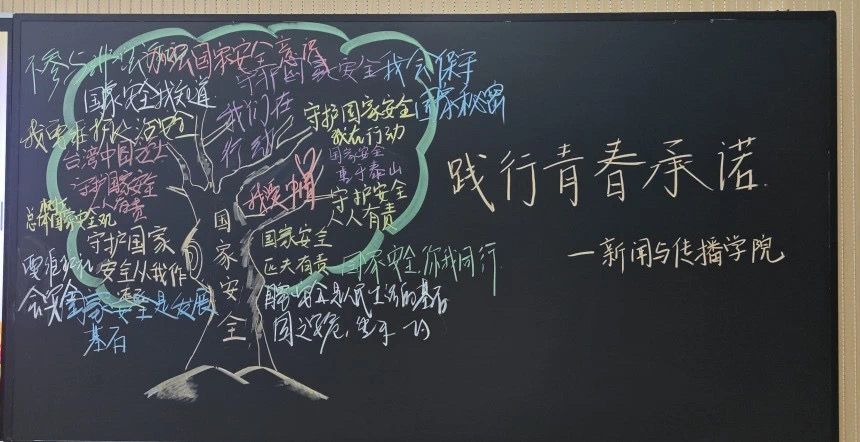 国家安全意识
守护国家安全
我会保守
国家秘密
国家安全我知道
我们在
行动
守护国家安全
我在行动
台湾中国之土
国家安全
重于泰山
守护国家安全
人人有责
我爱中国
守护安全
人人有责
总体国家安全观
守护国家
安全从我作
国家安全
国家安全
匹夫有责
国家安全 你我同行
国家安全是发展
基石
国家安全是人民生活的基石
国之安危,
践行青春承诺
—新闻与传播学院